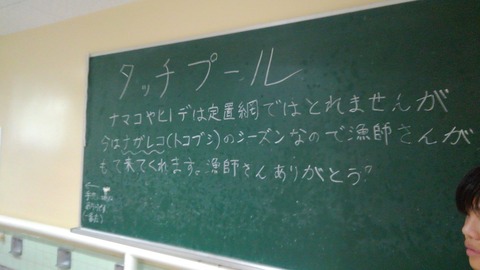 タッチプール
ナマコやヒトデは定置網ではとれませんが
今はナガレコ(トコブシ)のシーズンなので漁師さんが
もて来てくれます。漁師さんありがとう?